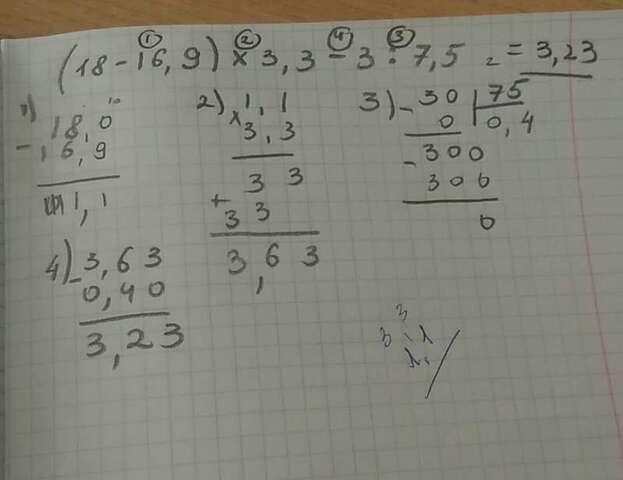 ① ② ④ ③
(18 - 16,9) × 3,3 - 3 : 7,5 = = 3,23
1) 18,0
- 16,9
1,1
2) × 1,1
3,3
3 3
+ 3 3
3,6 3
3) - 30 | 75
0 | 0,4
- 300
300
0
4) - 3,63
0,40
3,23